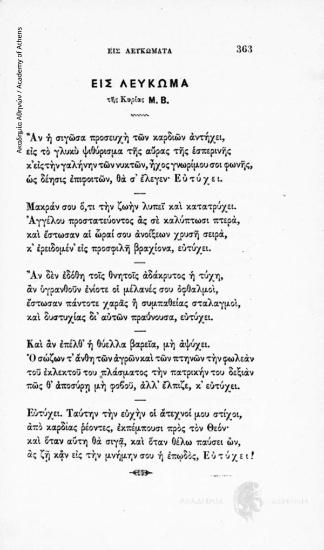 Ακαδημία Αθηνών / Academy of Athens
ΕΙΣ ΛΕΥΚΩΜΑΤΑ 363
ΕΙΣ ΛΕΥΚΩΜΑ
τῆς Κυρίας Μ. Β.
Ἂν ἡ σιγῶσα προσευχὴ τῶν καρδιῶν ἀντήχει,
εἰς τὸ γλυκὺ ψιθύρισμα τῆς αὔρας τῆς ἑσπερινῆς
κ' εἰς τὴν γαλήνην τῶν νυκτῶν, ἦχος γνωρίμου σοι φωνῆς,
ὡς δέησις ἐπιφοιτῶν, θὰ σ' ἔλεγεν· Εὐτύχει.
Μακράν σου ὅ,τι τὴν ζωὴν λυπεῖ καὶ κατατρύχει.
Ἀγγέλου προστατεύοντος ἂς σὲ καλύπτωσι πτερά,
καὶ ἔστωσαν αἱ ὧραί σου ἀνοίξεων χρυσῆ σειρά,
κ' ἐρειδομέν' εἰς προσφιλῆ βραχίονα, εὐτύχει.
Ἂν δὲν ἐδόθη τοῖς θνητοῖς ἀδάκρυτος ἡ τύχη,
ἂν ὑγρανθοῦν ἐνίοτε οἱ μέλανές σου ὀφθαλμοί,
ἔστωσαν πάντοτε χαρᾶς ἢ συμπαθείας σταλαγμοί,
καὶ δυστυχίας δι' αὐτῶν πραΰνουσα, εὐτύχει.
Καὶ ἂν ἐπέλθ' ἡ θύελλα βαρεῖα, μὴ ἀψύχει.
Ὁ σώζων τ' ἄνθη τῶν ἀγρῶν καὶ τῶν πτηνῶν τὴν φωλεὰν
τοῦ ἐκλεκτοῦ του πλάσματος τὴν πατρικήν του δεξιὰν
πῶς θ' ἀποσύρῃ μὴ φοβοῦ, ἀλλ' ἔλπιζε, κ' εὐτύχει.
Εὐτύχει. Ταύτην τὴν εὐχὴν οἱ ἄτεχνοί μου στίχοι,
ἀπὸ καρδίας ῥέοντες, ἐκπέμπουσι πρὸς τὸν Θεόν·
καὶ ὅταν αὕτη θὰ σιγᾷ, καὶ ὅταν θέλω παύσει ὤν,
ἂς ζῇ κἂν εἰς τὴν μνήμην σου ἡ ἐπῳδός, Εὐτύχει!
ΑΚΑΔΗΜΙΑ ΑΘΗΝΩΝ